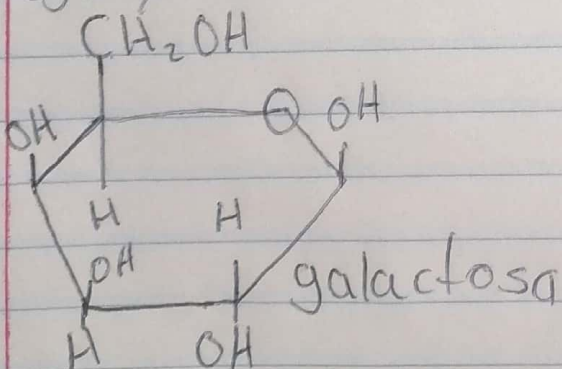 CH₂OH
O OH
OH
H H
OH
galactosa
H OH